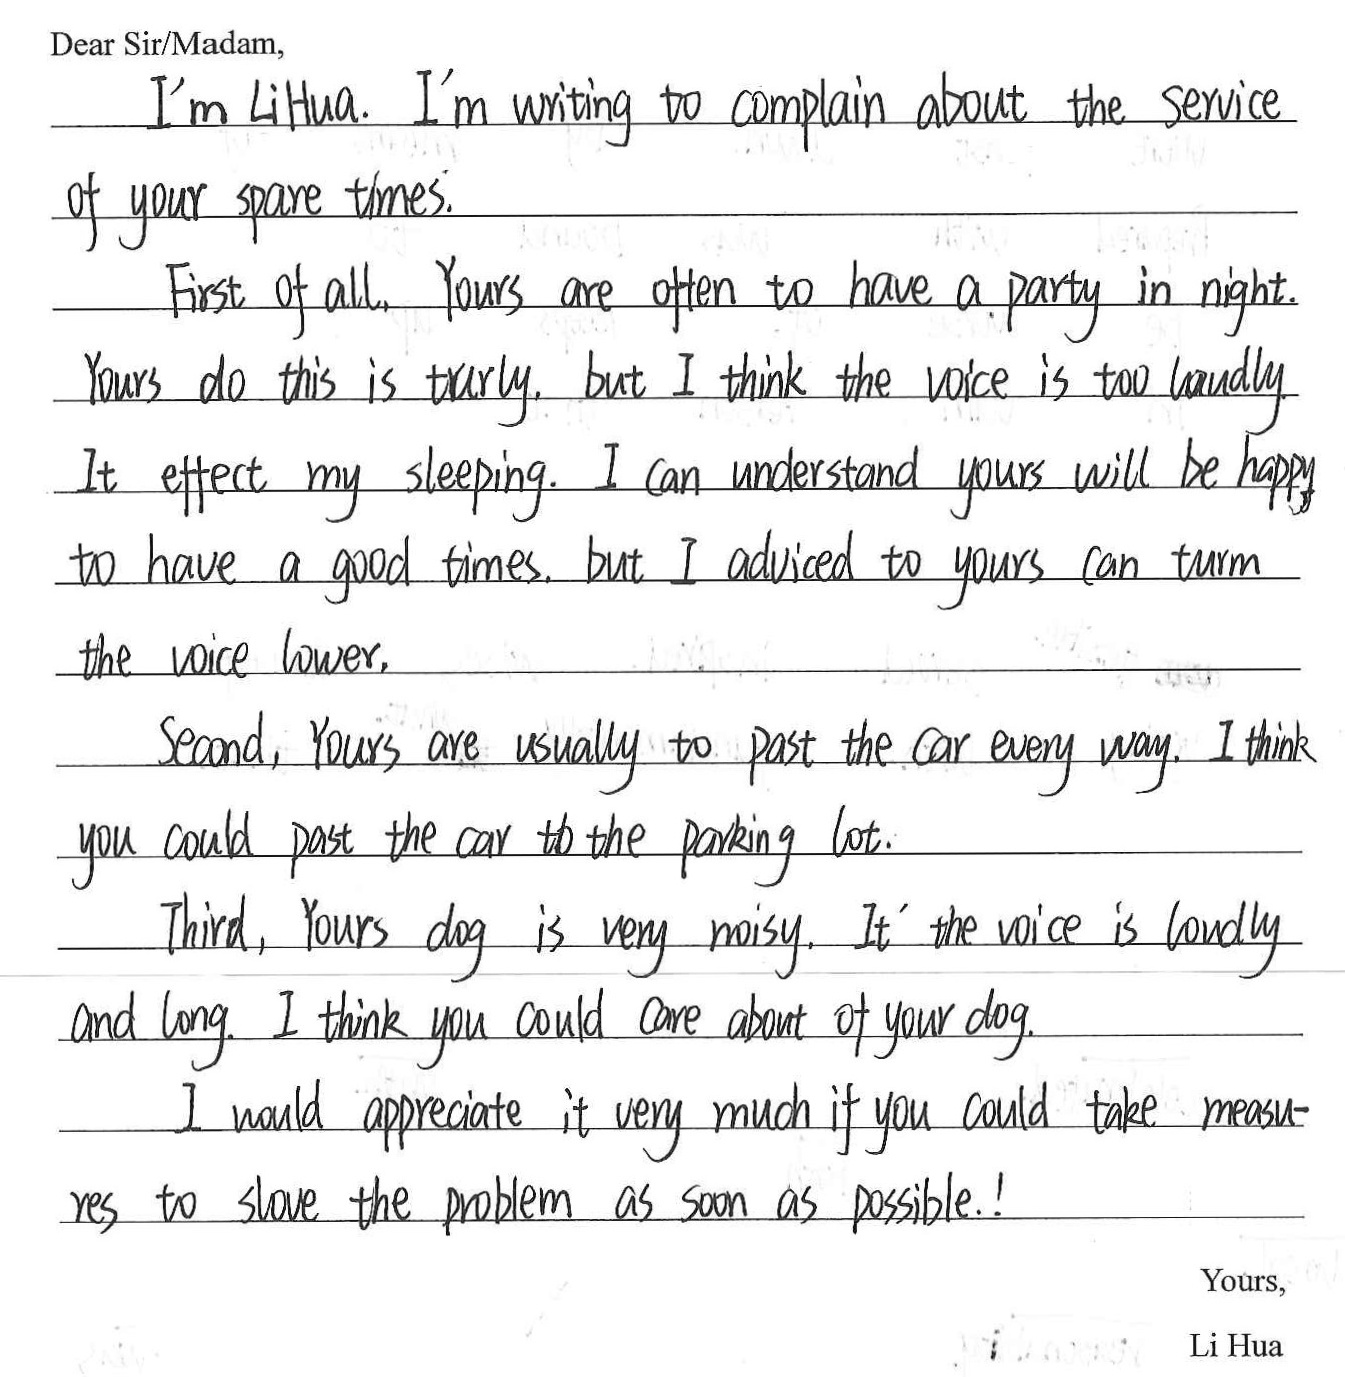 Dear Sir/Madam,
I'm Li Hua. I'm writing to complain about the service
of your spare times.
First of all, Yours are often to have a party in night.
Yours do this is trurly, but I think the voice is too laudly.
It effect my sleeping. I can understand yours will be happy
to have a good times. but I adviced to yours can turm
the voice lower.
Second, Yours are usually to past the car every way. I think
you could past the car to the parking lot.
Third, Yours dog is very noisy. It' the voice is loudly
and long. I think you could care about of your dog.
I would appreciate it very much if you could take measu-
res to slove the problem as soon as possible.!
Yours,
Li Hua